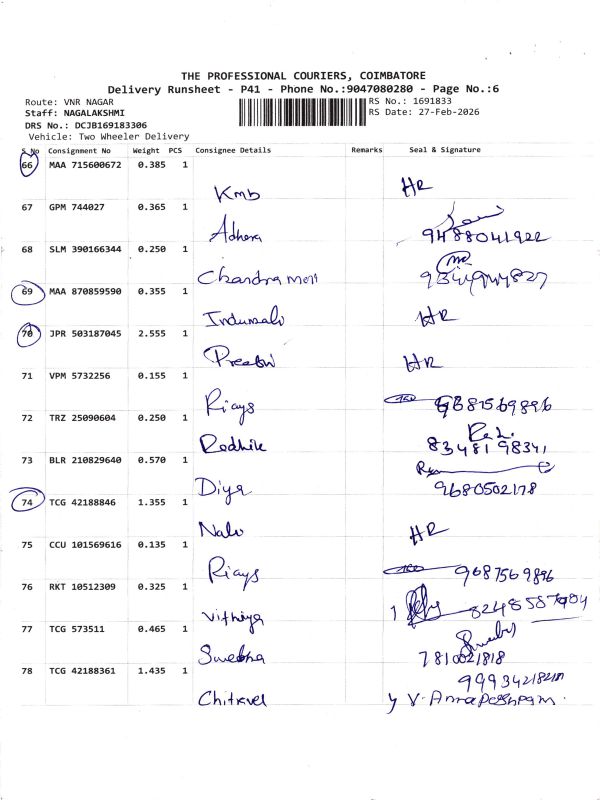 THE PROFESSIONAL COURIERS, COIMBATORE
Delivery Runsheet - P41 - Phone No.:9047080280 - Page No.:6
Route: VNR NAGAR RS No.: 1691833
Staff: NAGALAKSHMI RS Date: 27-Feb-2026
DRS No.: DCJB169183306
Vehicle: Two Wheeler Delivery
S.No Consignment No Weight PCS Consignee Details Remarks Seal & Signature
66 MAA 715600672 0.385 1
Kmb HR
67 GPM 744027 0.365 1
9488041922
68 SLM 390166344 0.250 1
Chandra
69 MAA 870859590 0.355 1
HR
70 JPR 503187045 2.555 1
HR
71 VPM 5732256 0.155 1
Riays
72 TRZ 25090604 0.250 1
8348198341
73 BLR 210829640 0.570 1
Diya 9680502178
74 TCG 42188846 1.355 1
HR
75 CCU 101569616 0.135 1
Riays 9687569896
76 RKT 10512309 0.325 1
Vithiya
77 TCG 573511 0.465 1
7810021818
78 TCG 42188361 1.435 1
Chitravel